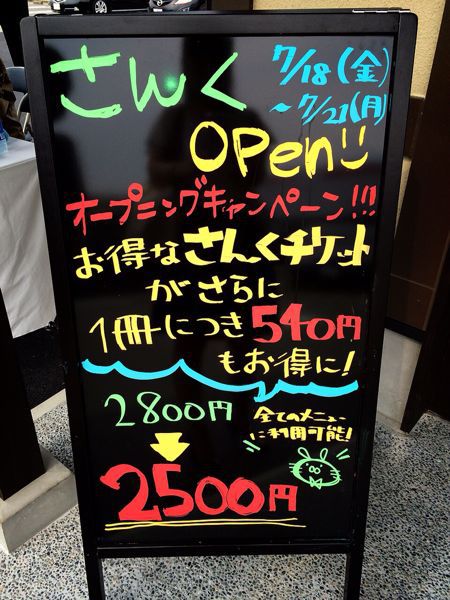 さんく
7/18(金)
~7/21(月)
OPen!!
オープニングキャンペーン!!!
お得なさんくチケット
がさらに
1冊につき540円
もお得に!
2800円
全てのメニュー
に利用可能!
2500円